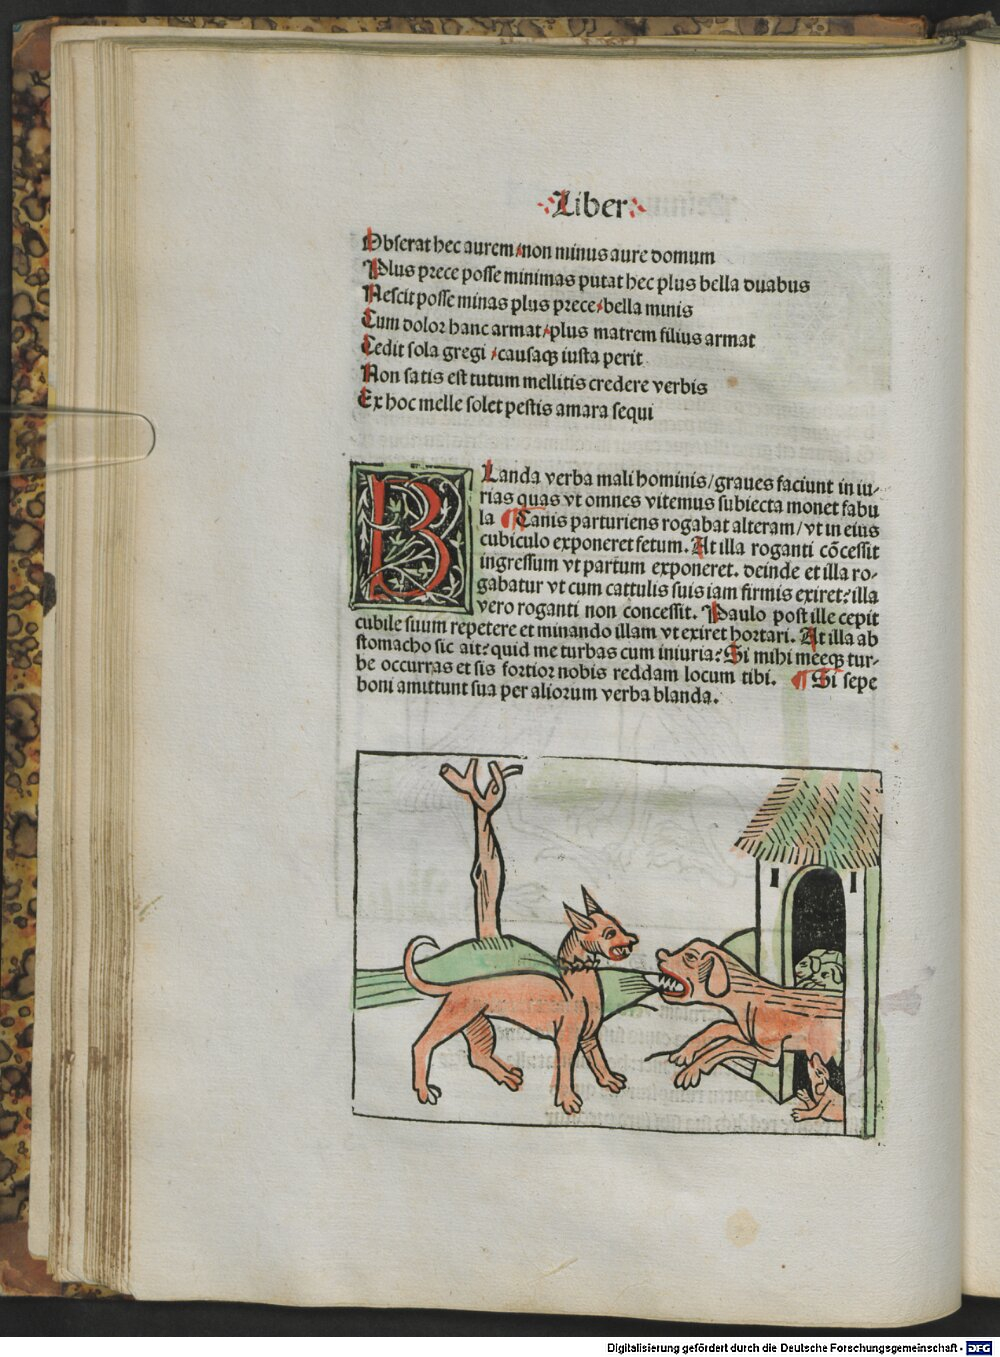 Liber
Obserat hec aurem/non minus aure domum
Plus prece posse minimas putat hec plus bella duabus
Nescit posse minas plus prece/bella minis
Cum dolor hanc armat/plus matrem filius armat
Cedit sola gregi/causaqȝ iusta perit
Non satis est tutum mellitis credere verbis
Ex hoc melle solet pestis amara sequi
BLanda verba mali hominis/graues faciunt in iu-
rias quas vt omnes vitemus subiecta monet fabu
la ¶ Canis parturiens rogabat alteram/vt in eius
cubiculo exponeret fetum. At illa roganti cōcessit
ingressum vt partum exponeret. deinde et illa ro-
gabatur vt cum cattulis suis iam firmis exiret: illa
vero roganti non concessit. Paulo post ille cepit
cubile suum repetere et minando illam vt exiret hortari. At illa ab
stomacho sic ait: quid me turbas cum iniuria? Si mihi meeqȝ tur-
be occurras et sis fortior nobis reddam locum tibi. ¶ Si sepe
boni amittunt sua per aliorum verba blanda.
Digitalisierung gefördert durch die Deutsche Forschungsgemeinschaft - DFG